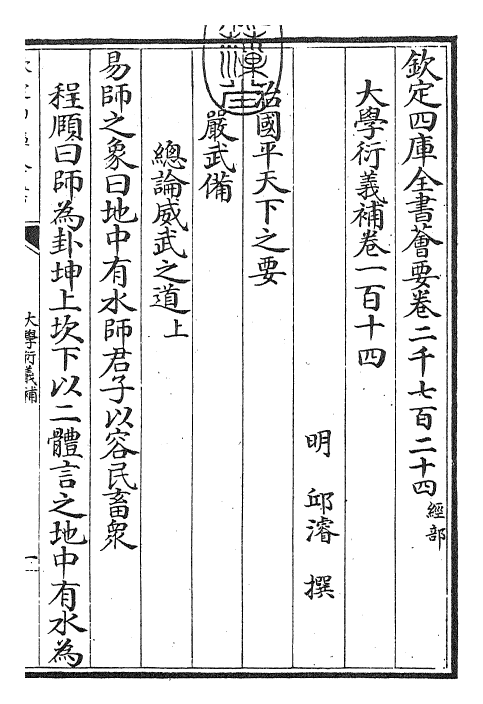 欽定四庫全書薈要卷二千七百二十四經部
大學衍義補卷一百十四
明 邱濬 撰
治國平天下之要
嚴武備
總論威武之道上
易師之象曰地中有水師君子以容民畜衆
程頤曰師為卦坤上坎下以二體言之地中有水為
大學衍義補
一